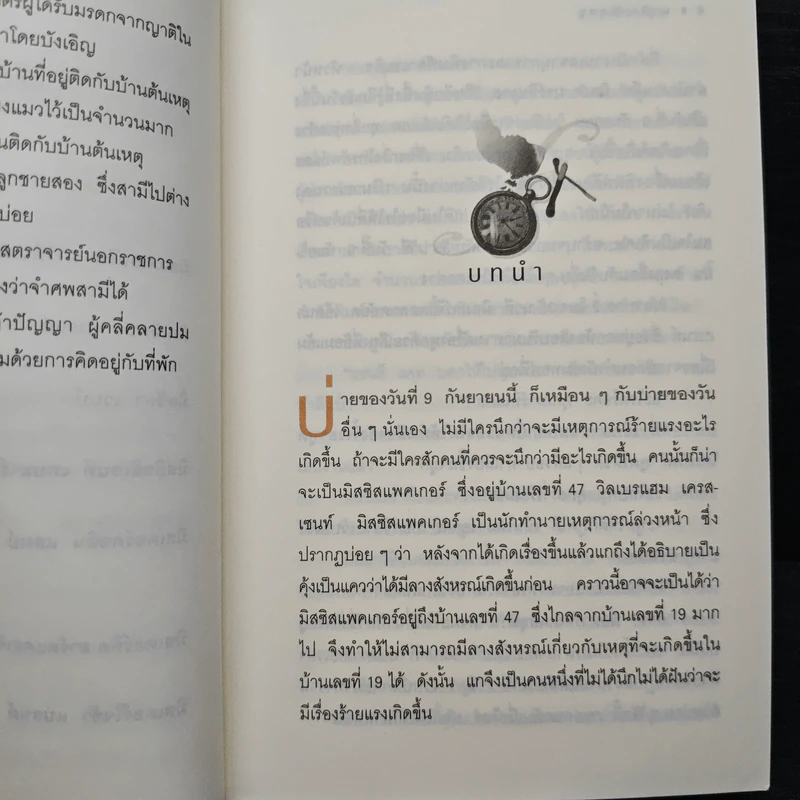 ตรผู้ได้รับมรดกจากญาติใน
าโดยบังเอิญ
บ้านที่อยู่ติดกับบ้านต้นเหตุ
งแมวไว้เป็นจำนวนมาก
นติดกับบ้านต้นเหตุ
ลูกชายสอง ซึ่งสามีไปต่าง
บ่อย
สตราจารย์นอกราชการ
งว่าจำศพสามีได้
จ้าปัญญา ผู้คลี่คลายปม
มด้วยการคิดอยู่กับที่พัก
บทนำ
บ่ายของวันที่ 9 กันยายนนี้ ก็เหมือน ๆ กับบ่ายของวัน
อื่น ๆ นั่นเอง ไม่มีใครนึกว่าจะมีเหตุการณ์ร้ายแรงอะไร
เกิดขึ้น ถ้าจะมีใครสักคนที่ควรจะนึกว่ามีอะไรเกิดขึ้น คนนั้นก็น่า
จะเป็นมิสซิสแพคเกอร์ ซึ่งอยู่บ้านเลขที่ 47 วิลเบรแฮม เครส-
เซนท์ มิสซิสแพคเกอร์ เป็นนักทำนายเหตุการณ์ล่วงหน้า ซึ่ง
ปรากฏบ่อย ๆ ว่า หลังจากได้เกิดเรื่องขึ้นแล้วแกถึงได้อธิบายเป็น
คุ้งเป็นแควว่าได้มีลางสังหรณ์เกิดขึ้นก่อน คราวนี้อาจจะเป็นได้ว่า
มิสซิสแพคเกอร์อยู่ถึงบ้านเลขที่ 47 ซึ่งไกลจากบ้านเลขที่ 19 มาก
ไป จึงทำให้ไม่สามารถมีลางสังหรณ์เกี่ยวกับเหตุที่จะเกิดขึ้นใน
บ้านเลขที่ 19 ได้ ดังนั้น แกจึงเป็นคนหนึ่งที่ไม่ได้นึกไม่ได้ฝันว่าจะ
มีเรื่องร้ายแรงเกิดขึ้น